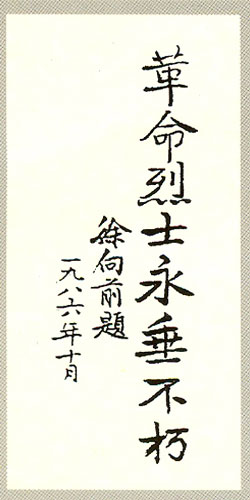 革命烈士永垂不朽
徐向前題
一九八六年十月